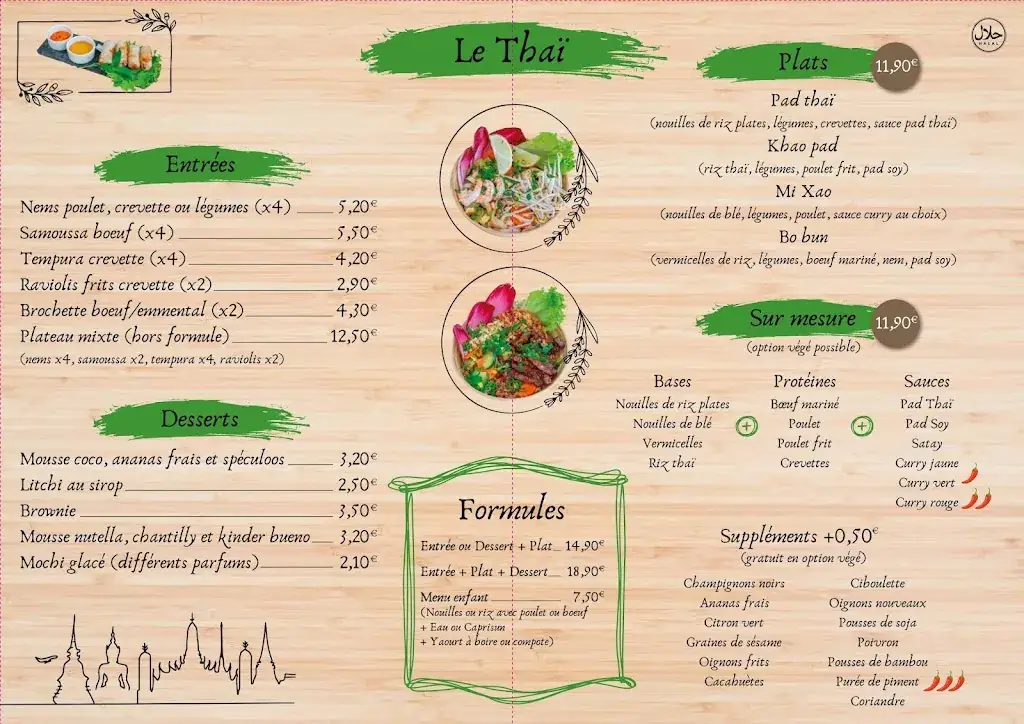 Le Thaï
Entrées
Nems poulet, crevette ou légumes (x4) 5,20€
Samoussa boeuf (x4) 5,50€
Tempura crevette (x4) 4,20€
Raviolis frits crevette (x2) 2,90€
Brochette boeuf/emmental (x2) 4,30€
Plateau mixte (hors formule) 12,50€
(nems x4, samoussa x2, tempura x4, raviolis x2)
Desserts
Mousse coco, ananas frais et spéculoos 3,20€
Litchi au sirop 2,50€
Brownie 3,50€
Mousse nutella, chantilly et kinder bueno 3,20€
Mochi glacé (différents parfums) 2,10€
Formules
Entrée ou Dessert + Plat 14,90€
Entrée + Plat + Dessert 18,90€
Menu enfant 7,50€
(Nouilles ou riz avec poulet ou boeuf
+ Eau ou Caprisun
+ Yaourt à boire ou compote)
حلال
HALAL
Plats 11,90€
Pad thaï
(nouilles de riz plates, légumes, crevettes, sauce pad thaï)
Khao pad
(riz thaï, légumes, poulet frit, pad soy)
Mi Xao
(nouilles de blé, légumes, poulet, sauce curry au choix)
Bo bun
(vermicelles de riz, légumes, boeuf mariné, nem, pad soy)
Sur mesure 11,90€
(option végé possible)
Bases
Nouilles de riz plates
Nouilles de blé
Vermicelles
Riz thaï
+
Protéines
Bœuf mariné
Poulet
Poulet frit
Crevettes
+
Sauces
Pad Thaï
Pad Soy
Satay
Curry jaune
Curry vert
Curry rouge
Suppléments +0,50€
(gratuit en option végé)
Champignons noirs
Ananas frais
Citron vert
Graines de sésame
Oignons frits
Cacahuètes
Ciboulette
Oignons nouveaux
Pousses de soja
Poivron
Pousses de bambou
Purée de piment
Coriandre